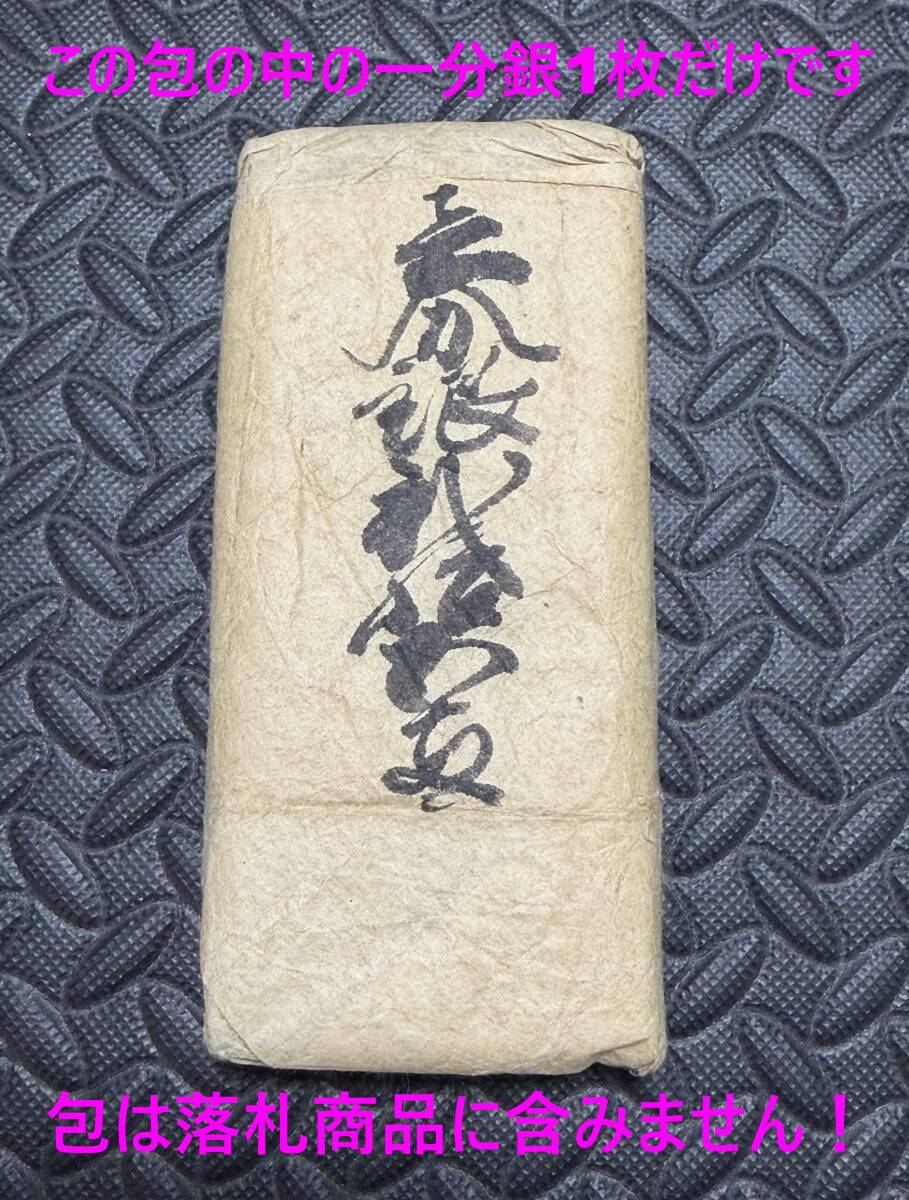 この包の中の一分銀1枚だけです
壱分銀
包は落札商品に含みません！